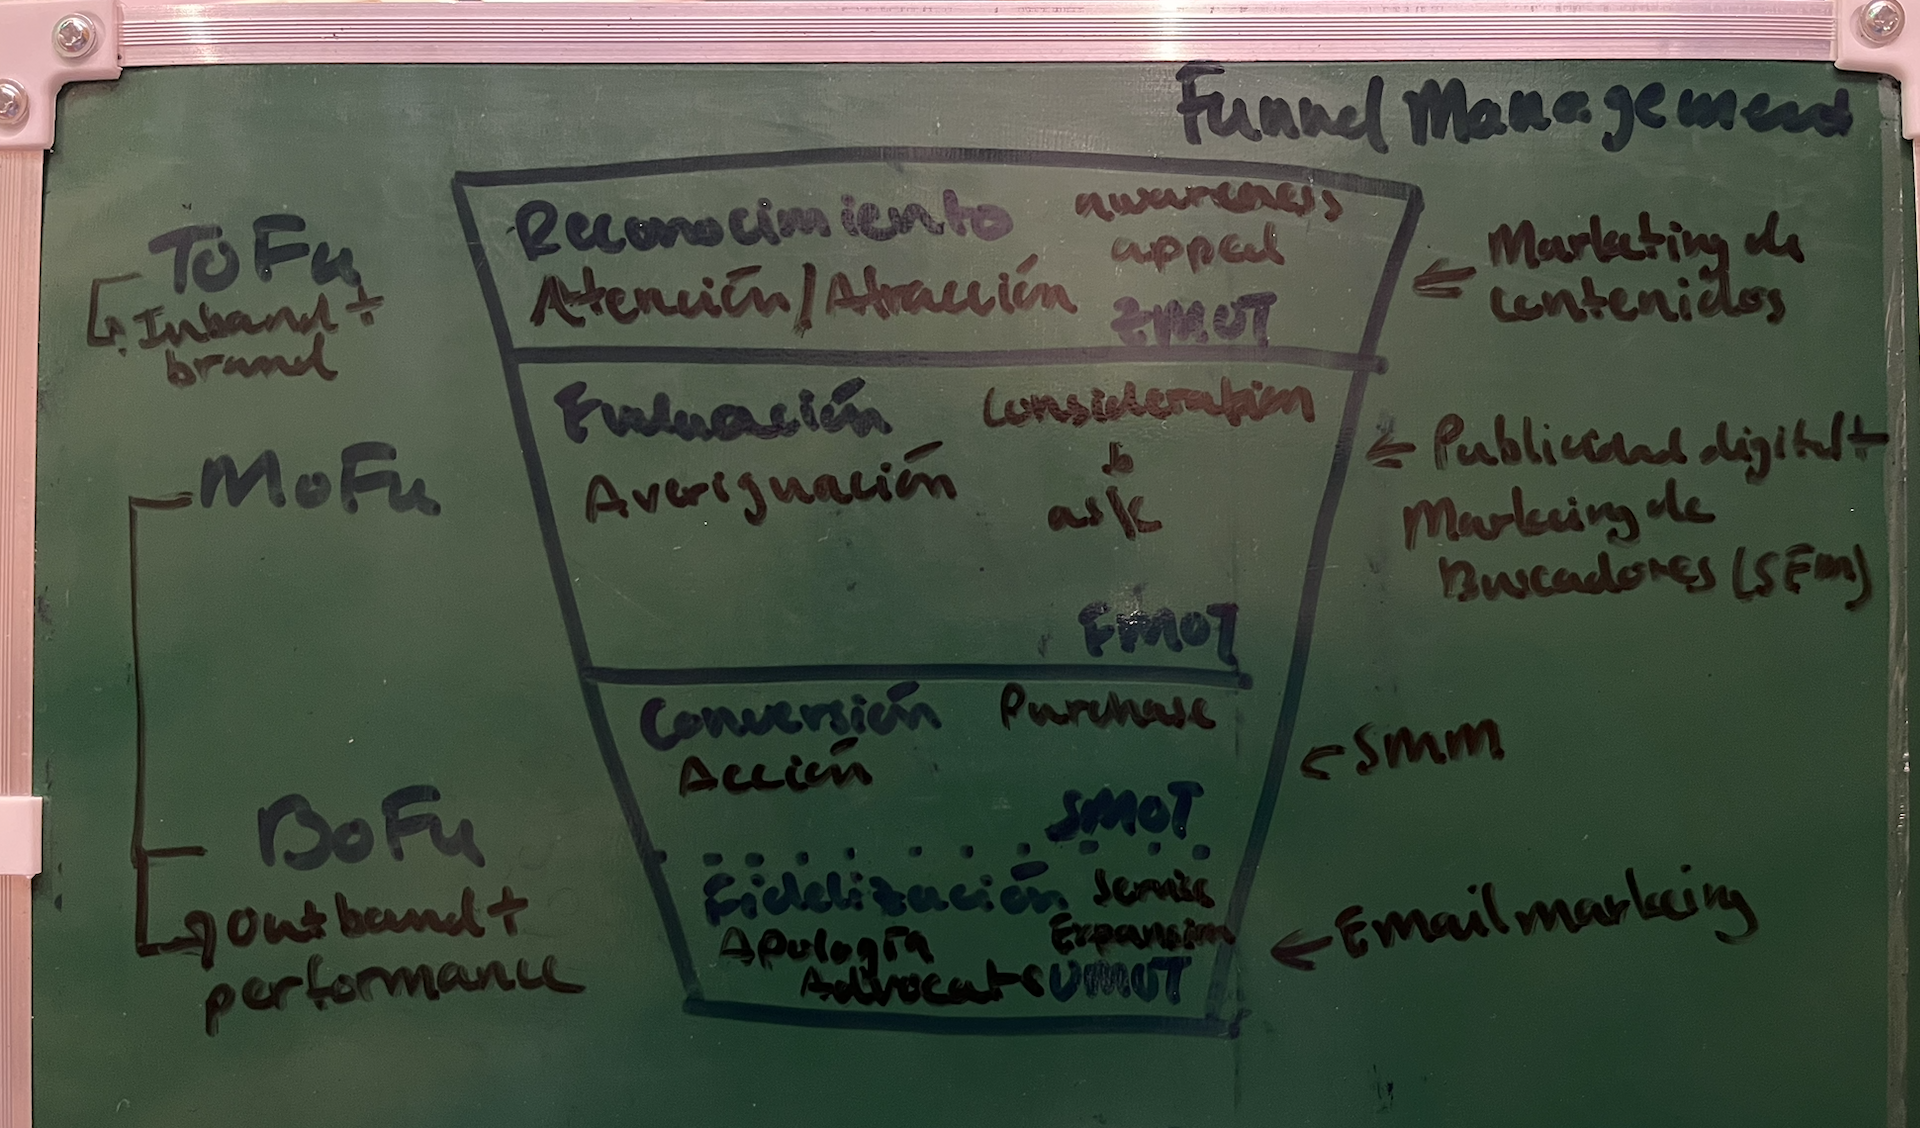 Funnel Management
ToFu
Inband +
brand
Reconocimiento
Atención/Atracción
awareness
appeal
ZMOT
Marketing de
contenidos
MoFu
Evaluación
Averiguación
Consideration
ask
FMOT
Publicidad digital +
Markeing de
Buscadores (SEM)
BoFu
Outband +
performance
Conversión
Acción
Purchase
SMOT
SMM
Fidelización
Apología
Advocate
Expansion
UMOT
Email markeing